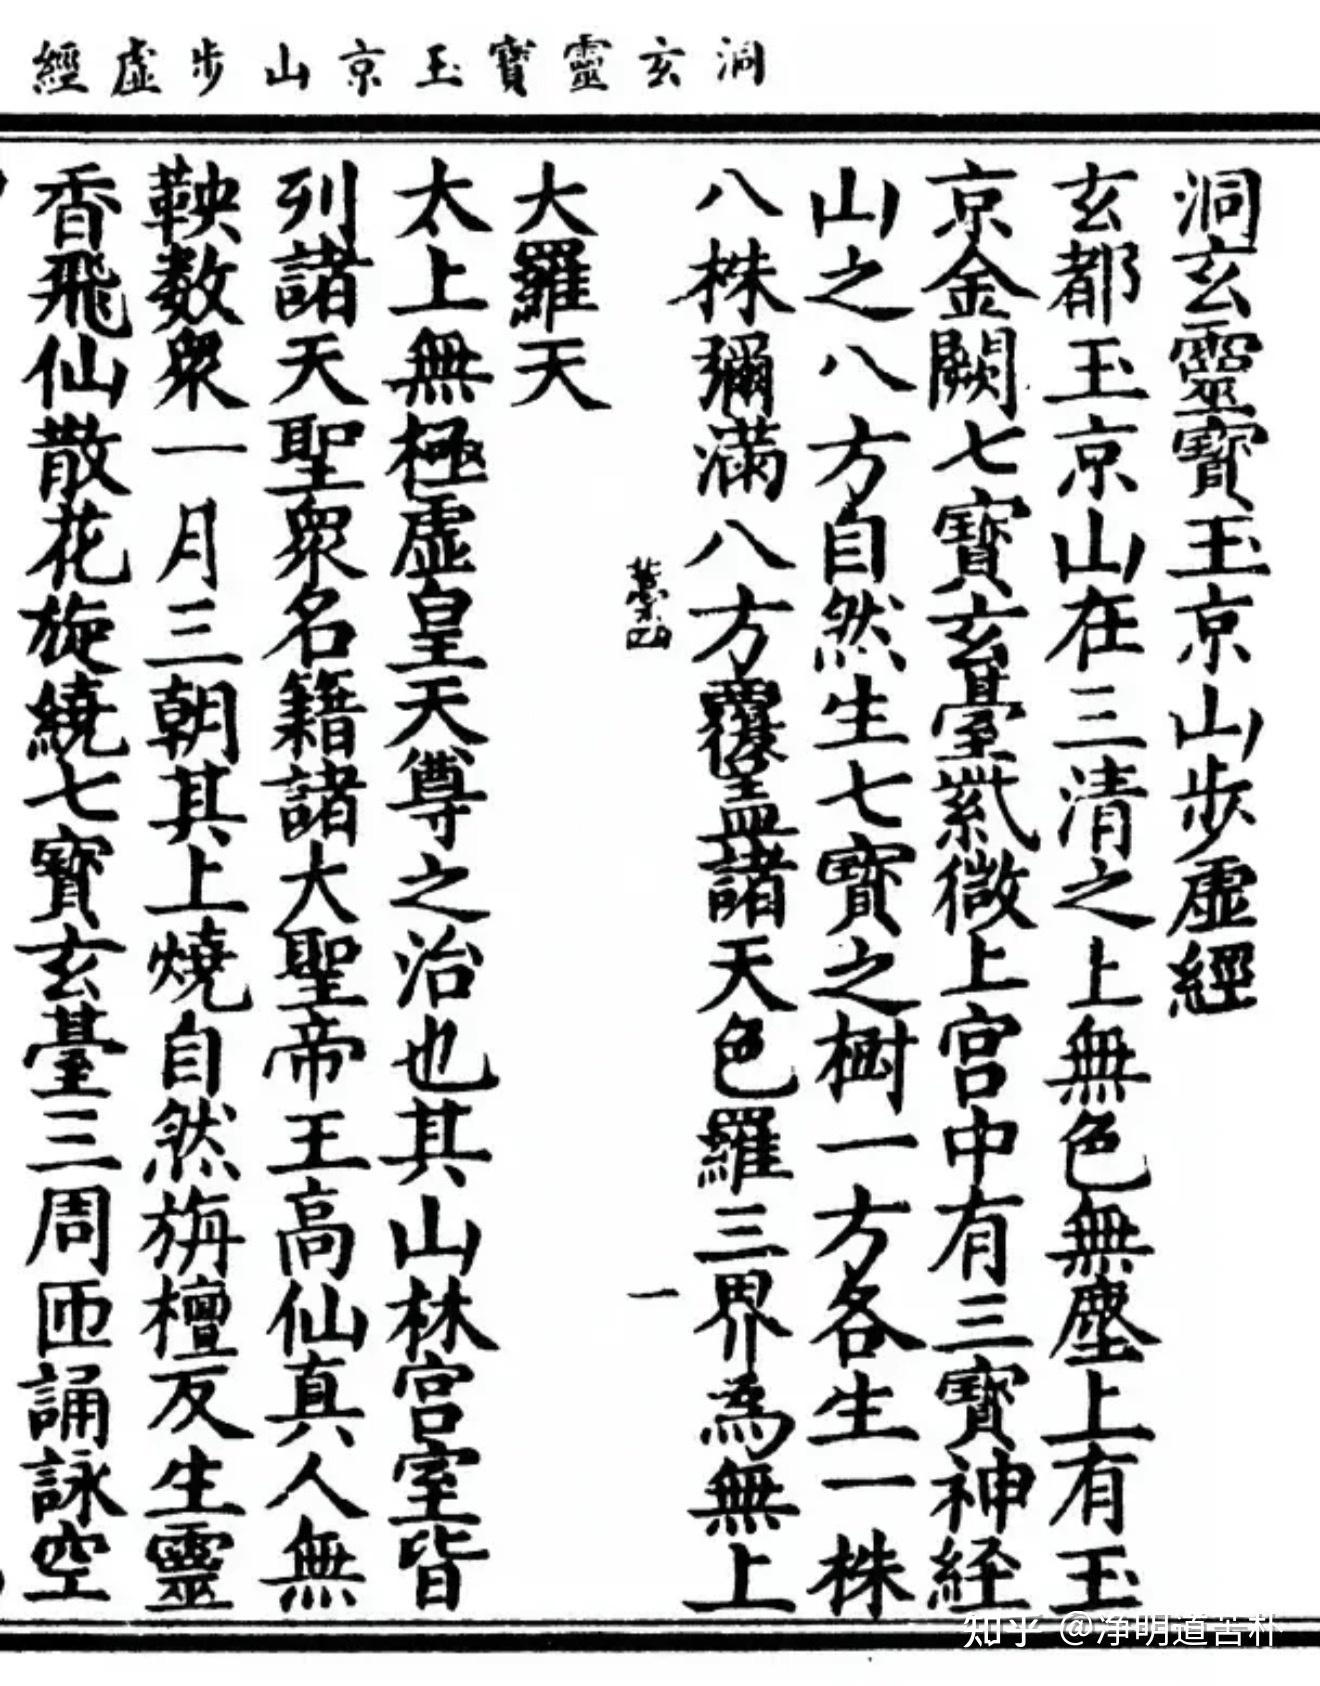 洞玄靈寳玉京山步虛經
洞玄靈寳玉京山步虛經
玄都玉京山在三清之上無色無塵上有玉
京金闕七寳玄臺紫微上宮中有三寳神経
山之八方自然生七寳之樹一方各生一株
八株彌滿八方覆蓋諸天色羅三界為無上
一
大羅天
太上無極虛皇天尊之治也其山林宮室皆
列諸天聖衆名籍諸大聖帝王高仙真人無
鞅数衆一月三朝其上燒自然旃檀反生靈
香飛仙散花旋繞七寳玄臺三周匝誦詠空
知乎 @净明道苦朴